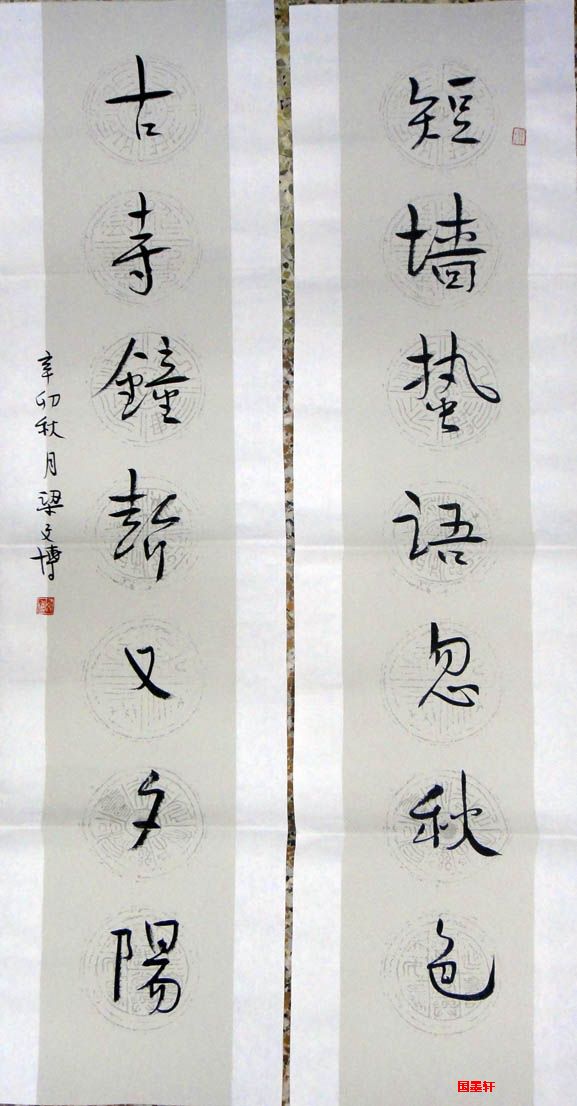 短墙蛩语忽秋色
古寺鐘聲又夕陽
辛卯秋月梁文博
国墨轩